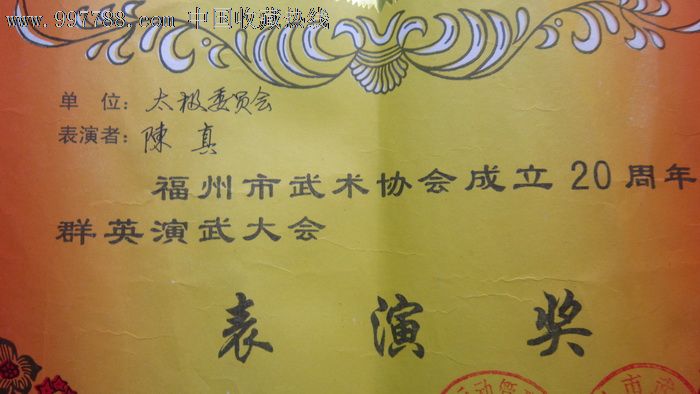 www.997788.com 中国收藏热线
单 位：太极委员会
表演者：陳 真
福州市武术协会成立20周年
群英演武大会
表 演 奖